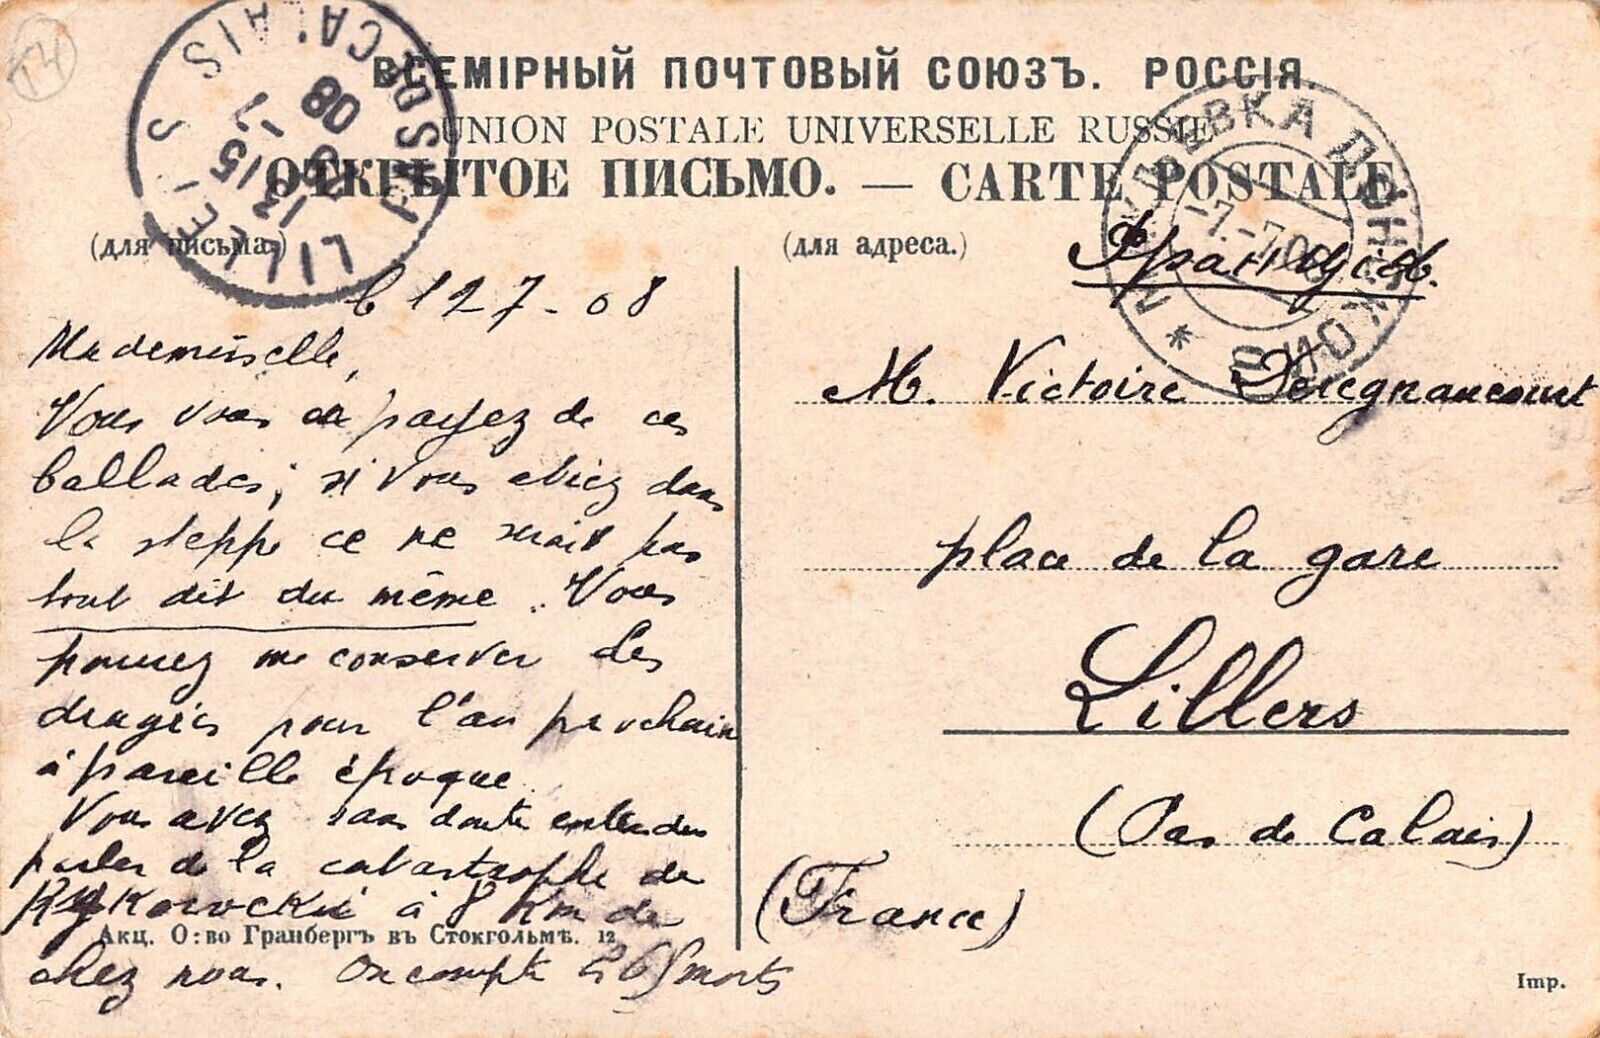 ВСЕМІРНЫЙ ПОЧТОВЫЙ СОЮЗЪ. РОССІЯ.
UNION POSTALE UNIVERSELLE RUSSIE
ОТКРЫТОЕ ПИСЬМО. — CARTE POSTALE
(для письма.)
(для адреса.)
LILLERS
PAS-DE-CALAIS
13 15
08
-7.-7.08
Франція.
le 12 7 - 08
Mademoiselle,
Vous vous en payez de ces
ballades ; si vous étiez dans
la steppe ce ne serait pas
tout dit du même. Vous
pouvez me conserver des
dragées pour l'an prochain
à pareille époque.
Vous avez sans doute entendu
parler de la catastrophe de
à 8 Km de
chez nous. On compte 265 morts
M. Victoire
place de la gare
Lillers
(Pas de Calais)
(France)
Акц. О:во Гранбергъ въ Стокгольмѣ. 12
Imp.
14